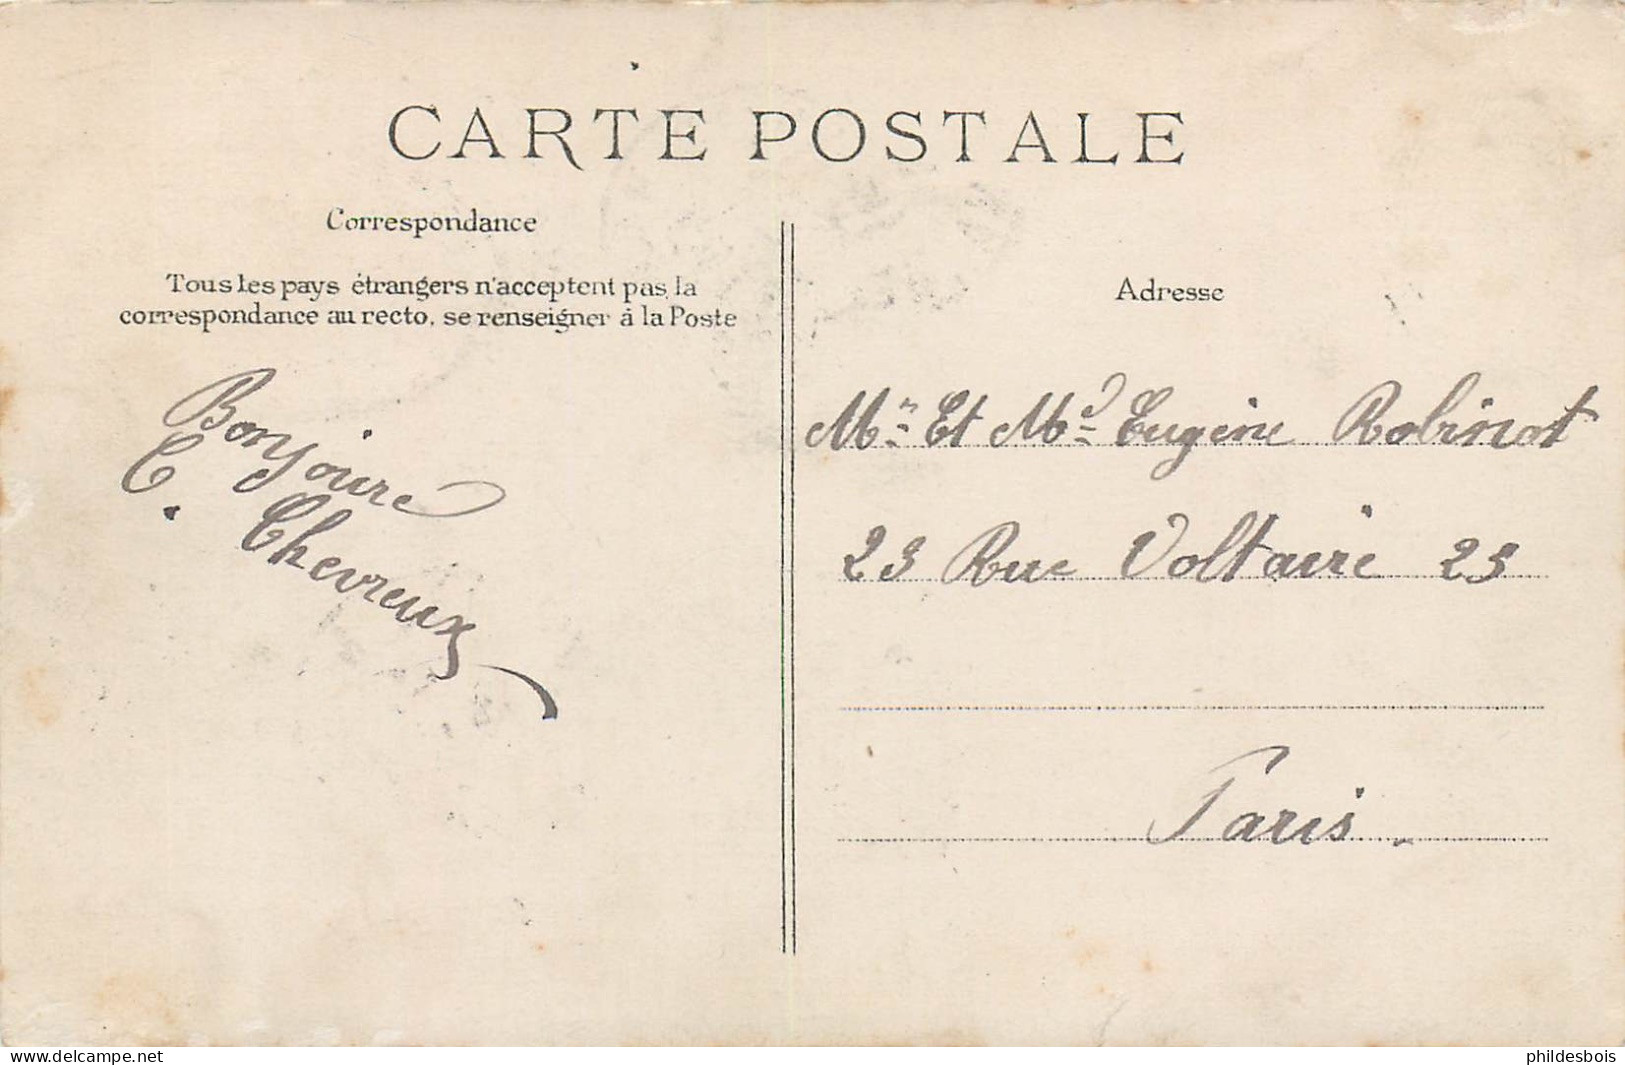 CARTE POSTALE
Correspondance
Tous les pays étrangers n'acceptent pas la
correspondance au recto, se renseigner à la Poste
Bonjoure
C. Chevreux
Adresse
Mr Et Md Eugène Robinot
23 Rue Voltaire 23
Paris.
www.delcampe.net
phildesbois